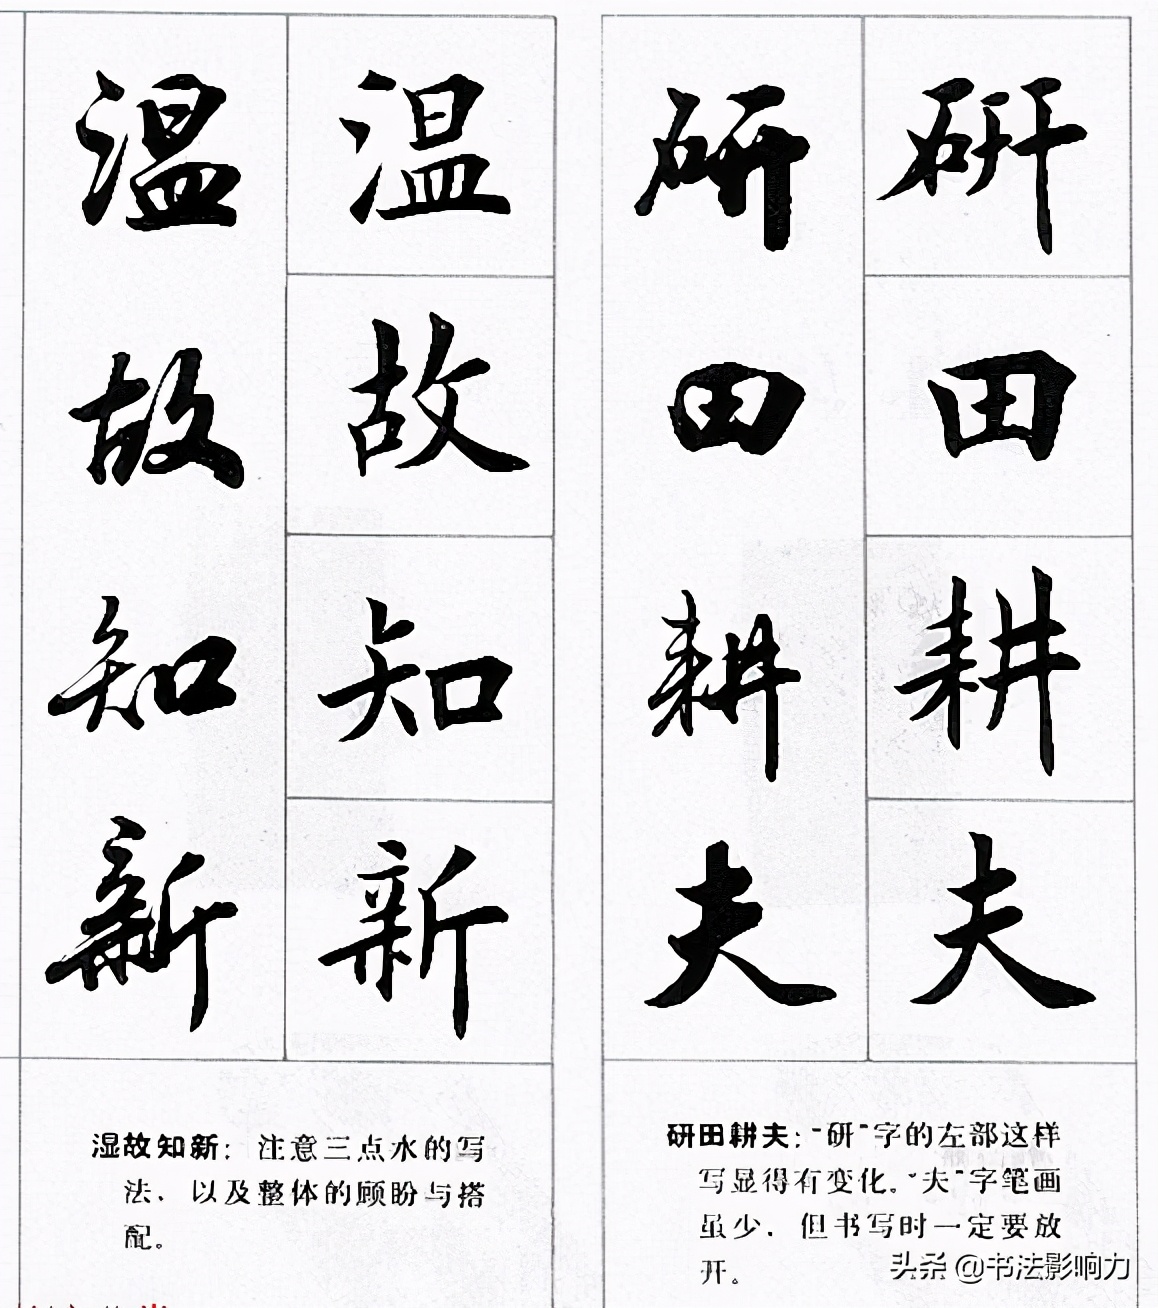 研田耕夫
研田耕夫
温故知新
温故知新
湿故知新：注意三点水的写
法，以及整体的顾盼与搭
配。
研田耕夫：“研”字的左部这样
写显得有变化。“夫”字笔画
虽少，但书写时一定要放
开。
头条 @书法影响力